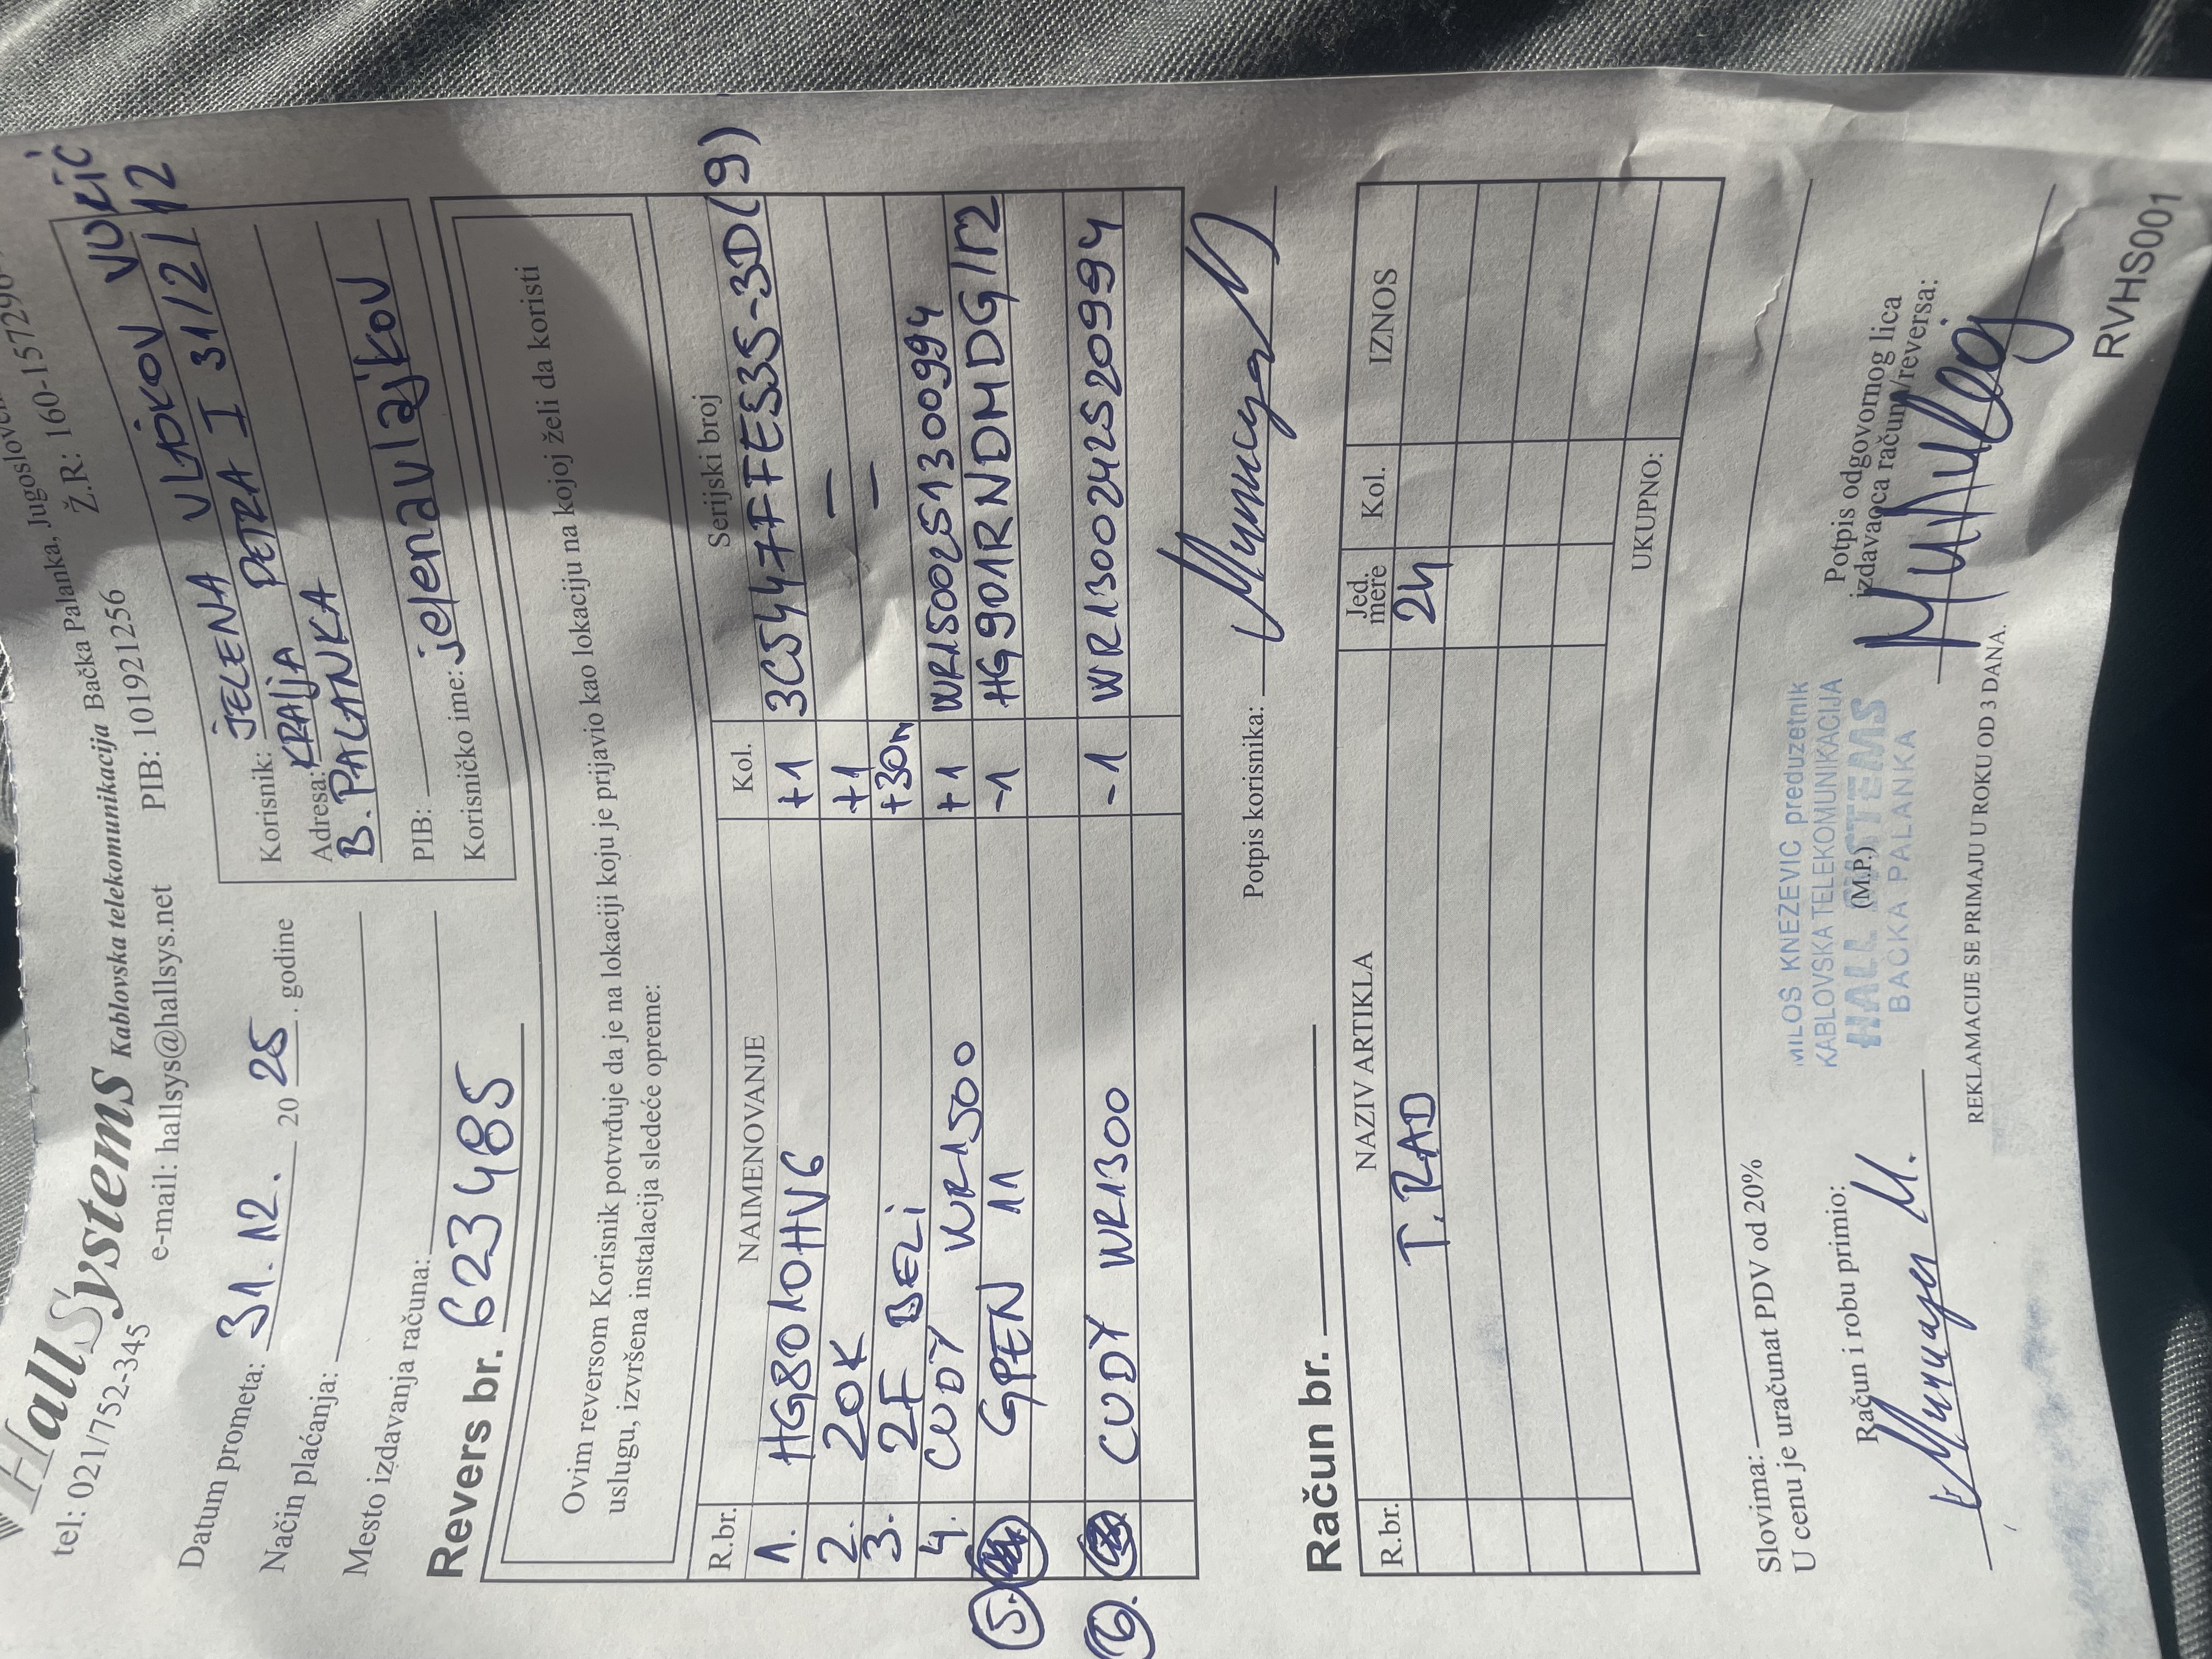 HallSystems Kablovska telekomunikacija Bačka Palanka, Jugoslovenske
tel: 021/752-345 e-mail: hallsys@hallsys.net PIB: 101921256 Ž.R: 160-157296
Datum prometa: 31. 12. 20 25. godine
Način plaćanja:
Mesto izdavanja računa:
Revers br. 623485
Korisnik: JELENA VLAJKOV VUJIĆ
Adresa: KRALJA PETRA I 31/2/12
B. PALANKA
PIB:
Korisničko ime: jelenavlajkov
Ovim reversom Korisnik potvrđuje da je na lokaciji koju je prijavio kao lokaciju na kojoj želi da koristi
uslugu, izvršena instalacija sledeće opreme:
R.br. NAIMENOVANJE Kol. Serijski broj
1. HG8010HV6 +1 3C5447FFE535-3D(9)
2. 20K +1 —
3. 2F BELI +30m —
4. CUDY WR1500 +1 WR1500251300994
5. GPEN 11 -1 HG901RNDMDG/12
6. CUDY WR1300 -1 WR1300242520994
Potpis korisnika:
Račun br.
R.br. NAZIV ARTIKLA Jed. mere Kol. IZNOS
T. RAD 2h
UKUPNO:
Slovima:
U cenu je uračunat PDV od 20%
Račun i robu primio:
MILOŠ KNEŽEVIĆ preduzetnik
KABLOVSKA TELEKOMUNIKACIJA
HALL SYSTEMS
BAČKA PALANKA
(M.P.)
Potpis odgovornog lica
izdavaoca račun/reversa:
REKLAMACIJE SE PRIMAJU U ROKU OD 3 DANA.
RVHS001